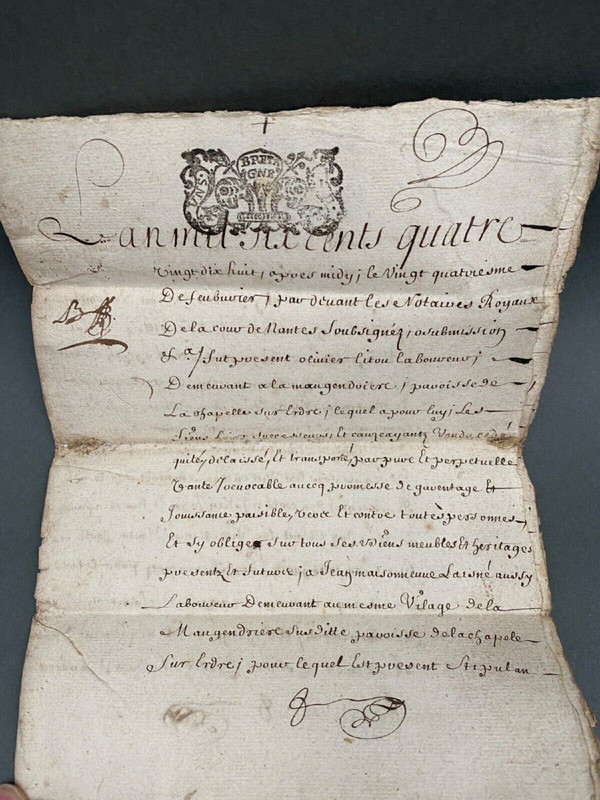 BRETA
GNE
Lan mil six cents quatre
vingt dix huit, apres midy, le vingt quatriesme
De feubvrier, par devant les Notaires Royaux
De la cour de Nantes soubsignez, o submission
& ca, fut present olivier litou laboureur,
Demeurant a la maugendriere, paroisse de
La chapelle sur Erdre, lequel a pour luy, Les
siens hoirs, successeurs, Et cauzeayantz Vendu, cedé
quité, delaissé, Et transporté, par pure Et perpetuelle
Vante Irevocable avecq promesse de garentage Et
Jouissance paisible, vers Et contre touttes personnes,
Et sy oblige sur tous ses biens meubles Et heritages
presentz Et futurs, a Jean maisonneuve Laisné aussy
Laboureur Demeurant au mesme Vilage de la
Maugendriere susditte paroisse de la chapele
Sur Erdre, pour lequel Est present Stipulan